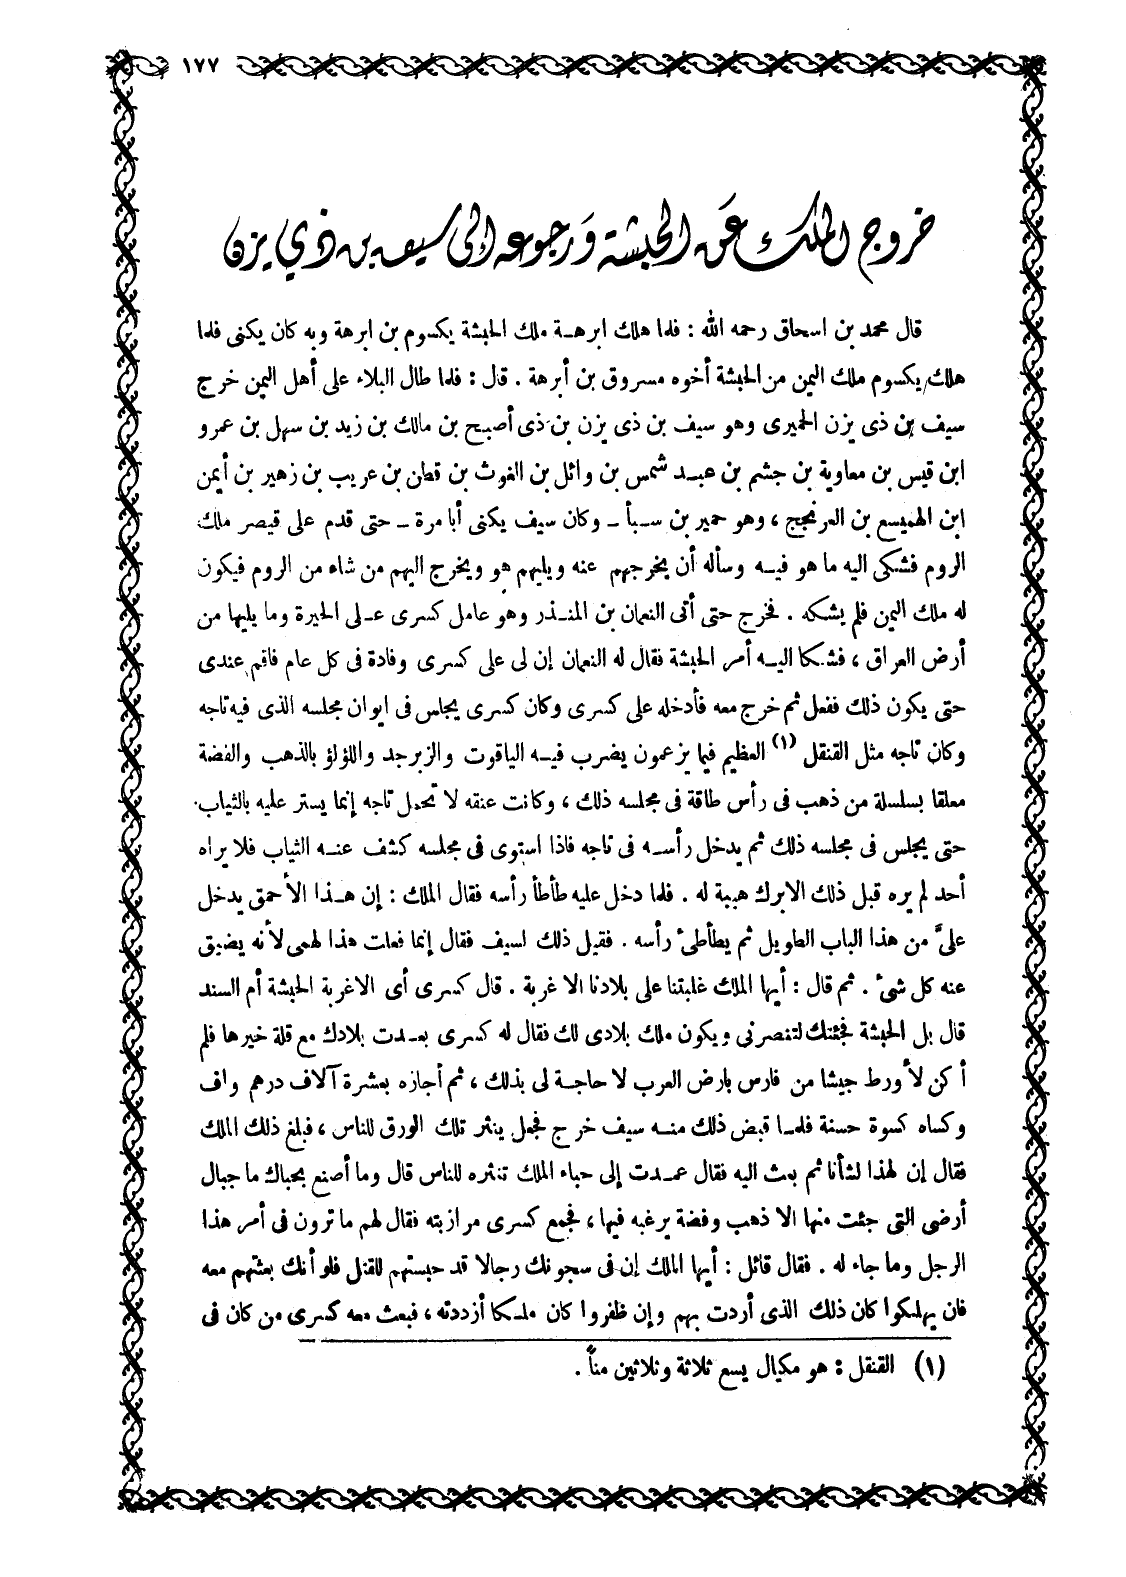 ١٧٧
خروج الملك عن الحبشة ورجوعه إلى سيف بن ذي يزن
قال محمد بن اسحاق رحمه الله : فلما هلك ابرهــة ملك الحبشة يكسوم بن ابرهة وبه كان يكنى فلما
هلك يكسوم ملك اليمن من الحبشة أخوه مسروق بن أبرهة . قال : فلما طال البلاء على أهل اليمن خرج
سيف بن ذى يزن الحميرى وهو سيف بن ذى يزن بن ذى أصبح بن مالك بن زيد بن سهل بن عمرو
ابن قيس بن معاوية بن جشم بن عبــد شمس بن وائل بن الغوث بن قطن بن عريب بن زهير بن أيمن
ابن الهميسع بن العرنجج ، وهو حمير بن سـبأ ــ وكان سيف يكنى أبا مرة ــ حتى قدم على قيصر ملك
الروم فشكى اليه ما هو فيــه وسأله أن يخرجهم عنه ويليهم هو ويخرج اليهم من شاه من الروم فيكون
له ملك اليمن فلم يشكه . فخرج حتى أتى النعمان بن المنــذر وهو عامل كسرى عـلى الحيرة وما يليها من
أرض العراق ، فشكا اليــه أمر الحبشة فقال له النعمان إن لى على كسرى وفادة فى كل عام فاقم عندى
حتى يكون ذلك ففعل ثم خرج معه فأدخله على كسرى وكان كسرى يجلس فى ايوان مجلسه الذى فيه تاجه
وكان تاجه مثل القنقل (١) العظيم فيما يزعمون يضرب فيــه الياقوت والزبرجد واللؤلؤ بالذهب والفضة
معلقا بسلسلة من ذهب فى رأس طاقة فى مجلسه ذلك ، وكانت عنقه لا تحمل تاجه إنما يستر عليه بالثياب
حتى يجلس فى مجلسه ذلك ثم يدخل رأســه فى تاجه فاذا استوى فى مجلسه كشف عنــه الثياب فلا يراه
أحد لم يره قبل ذلك الا برك هيبة له . فلما دخل عليه طأطأ رأسه فقال الملك : إن هــذا الأحمق يدخل
علىَّ من هذا الباب الطويل ثم يطأطئ رأسه . فقيل ذلك لسيف فقال إنما فعلت هذا لهمى لأنه يضيق
عنه كل شئ . ثم قال : أيها الملك غلبتنا على بلادنا الاغربة . قال كسرى أى الاغربة الحبشة أم السند
قال بل الحبشة فجئتك لتنصرنى ويكون ملك بلادى لك فقال له كسرى بعــدت بلادك مع قلة خيرها فلم
أكن لأورط جيشا من فارس بارض العرب لا حاجــة لى بذلك ، ثم أجازه بعشرة آلاف درهم واف
وكساه كسوة حسنة فلمــا قبض ذلك منــه سيف خرج فجعل ينثر تلك الورق للناس ، فبلغ ذلك الملك
فقال إن لهذا لشأنا ثم بعث اليه فقال عمــدت إلى حباء الملك تنثره للناس قال وما أصنع بحباك ما جبال
أرضى التى جئت منها الا ذهب وفضة يرغبه فيها ، فجمع كسرى مرازبته فقال لهم ما ترون فى أمر هذا
الرجل وما جاء له . فقال قائل : أيها الملك إن فى سجونك رجالا قد حبستهم للقتل فلو أنك بعثتهم معه
فان يهلكوا كان ذلك الذى أردت بهم وإن ظفروا كان ملـكا أزددته ، فبعث معه كسرى من كان فى
(١) القنقل : هو مكيال يسع ثلاثة وثلاثين مناً .